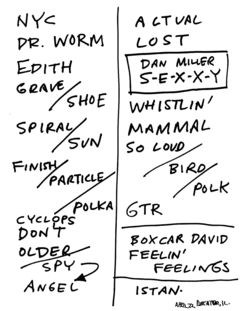 NYC
DR. WORM
EDITH
GRAVE
SHOE
SPIRAL
SUN
FINISH
PARTICLE
POLKA
CYCLOPS
DON'T
OLDER
SPY
ANGEL
ACTUAL
LOST
DAN MILLER
S-E-X-X-Y
WHISTLIN'
MAMMAL
SO LOUD
BIRD
POLK
GTR
BOXCAR DAVID
FEELIN'
FEELINGS
ISTAN.